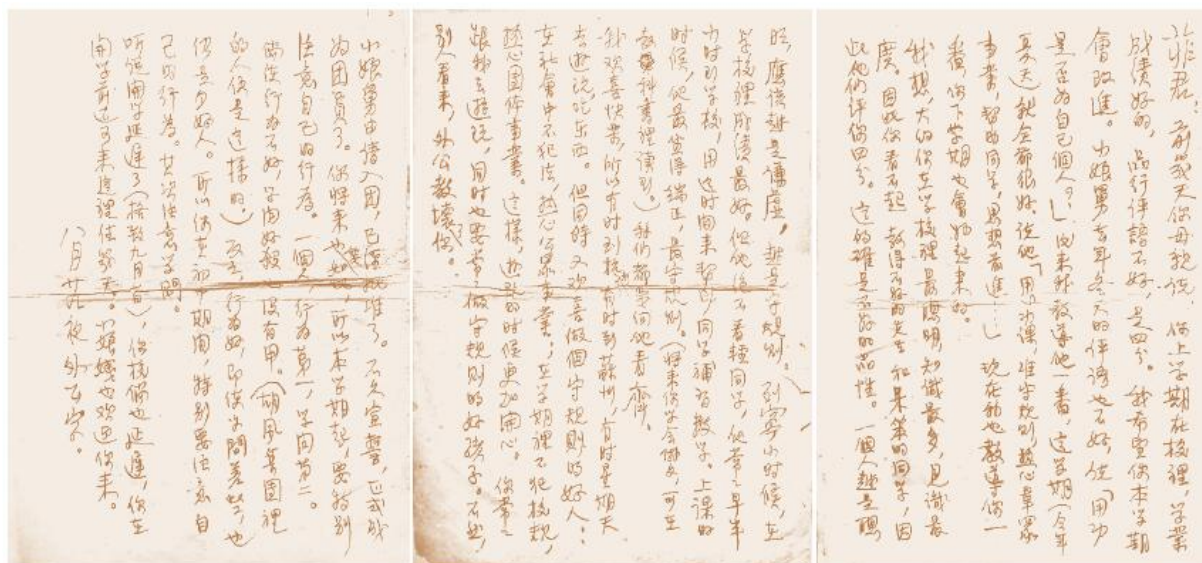 非君，前幾天你母親說，你上学期在校裡，学業
成績好的，品行評語不好，是四分。我希望你本学期
會改進。小娘舅去年冬天的評語也不好，說「用功
是否為自己個人？」后来我教導他一番，这学期（今年
夏天）就全都很好。說他「用功讀，遵守規則，热心羣眾
事業，幇助同学，思想前進……」現在我也教導你一
番，你下学期也會好起来的。
我想，大约你在学校裡最聰明，知識最多，見識最
廣。因此你看不起教得不好的先生和笨的同学，因
此他们評你四分。这的確是不好的品性。一個人越是聰
明，應該越是謙虛，越是守規則。列寧小時候，在
学校裡成績最好。但他從不看輕同学，他常々早半
小时到学校，用這时間来幇助同学補習数学。上課的
时候，他最坐得端正，最守規則。（将来你学会俄文，可在
教科書裡讀到。）我们都要向他看齊。
我欢喜快樂，所以有时到杭州，有时到蘇州，有时星期天
去遊玩吃东西。但同時又欢喜做個守規則的好人：
在社會中不犯法，热心公眾事業。在学期裡不犯校規，
热心团体事業。这樣，遊玩的时候更加開心。你常々
跟我去遊玩，同時也要常做守規則的好孩子。不然，
別人看来，外公教壞你。
小娘舅申請入团，已經批准了。不久宣誓，正式成
为团員了。你将来也要如此，所以本学期起，要特別
注意自己的行为。一個人，行为第一，学問第二。
倘使行为不好，学問好殺也沒有用。（胡風集团裡
的人便是这樣的）反之，行为好，即使学問差些，也
仍是個好人。所以你在初中期間，特別要注意自
己的行为。其次注意学問。
听說開学延遲了（括弧九月初），你校倘也延遲，你在
開学前还可来这裡住幾天。小娘娘也欢迎你来。
八月廿九夜 外公字。